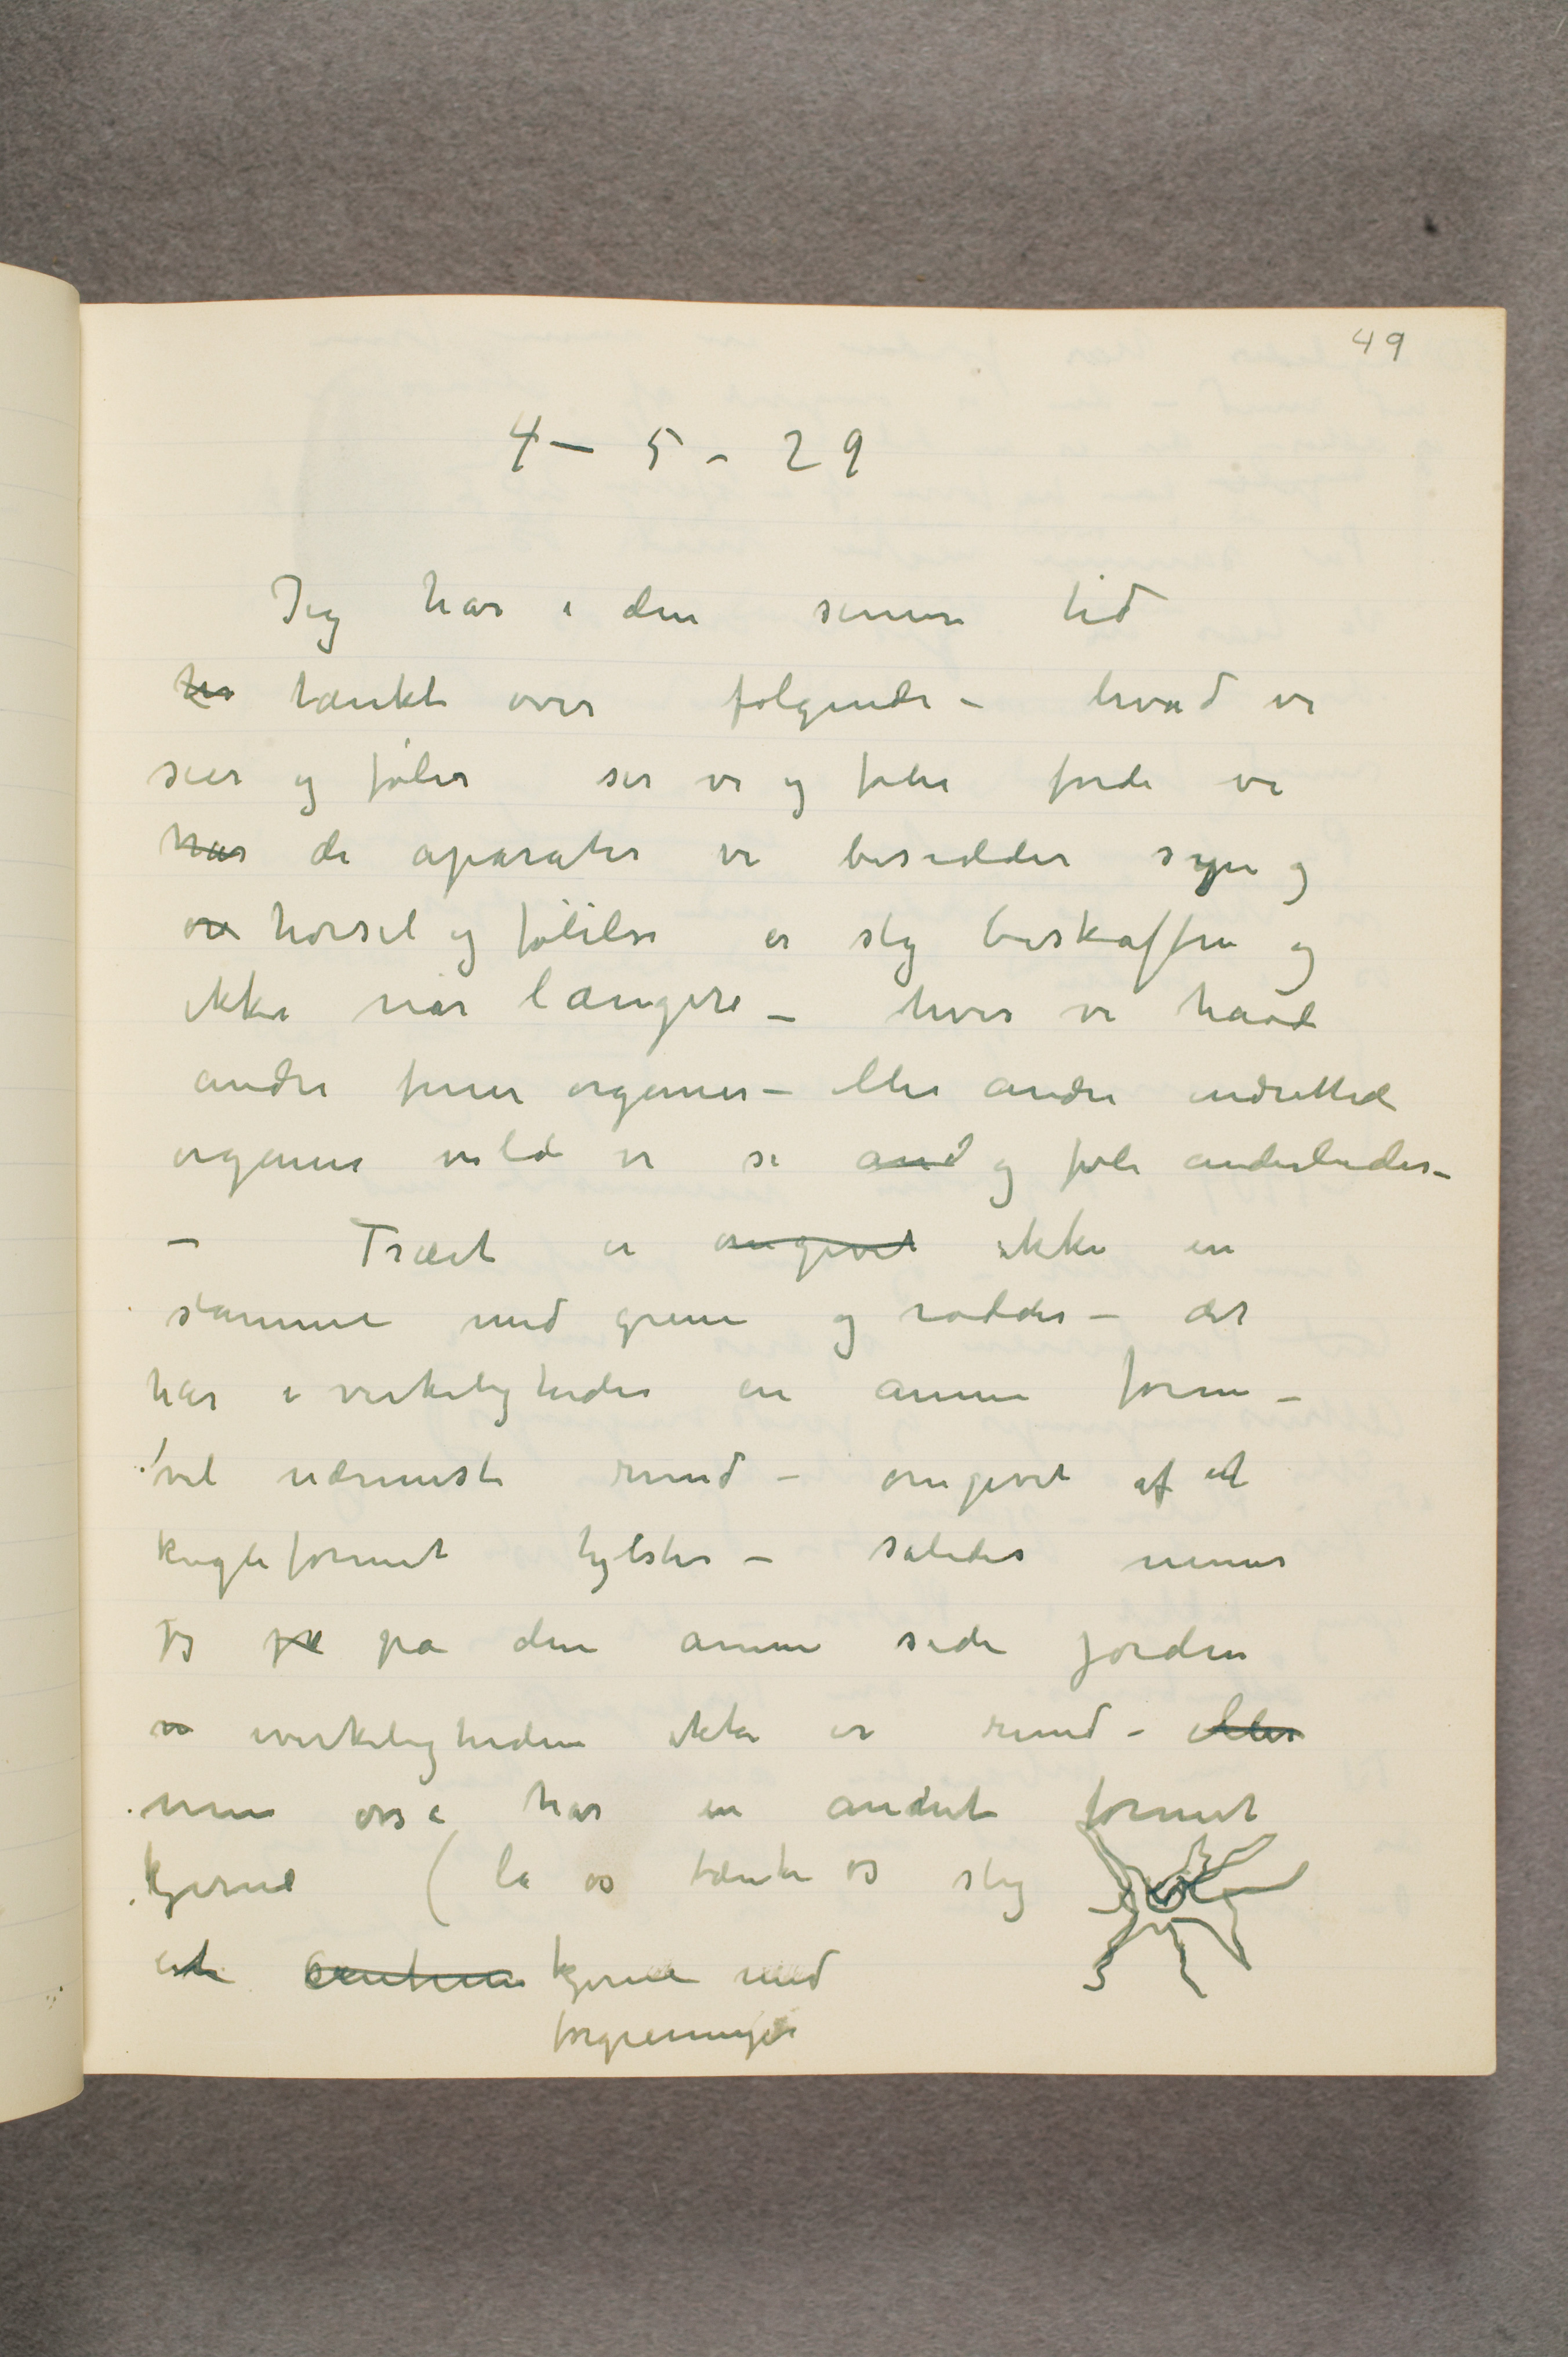 49
4 – 5 – 29
Jeg har i den senere tid
har tænkt over følgende – hvad vi
seer og føler ser vi og føler fordi vi
har de aparater vi besidder syn og
øre hørsel og følelse er slig beskaffen og
ikke når længere – hvis vi havde
andre finere organer – eller andre indrettede
organer vilde vi se and og føle anderledes –
– Træet er omgivet ikke en
stamme med grene og rødder – det
har i virkeligheden en annen form –
vel nærmest rund – omgivet af et
kugleformet hylster – således mener
jeg på den annen side jorden
ivirkeligheden ikke er rund – eller
men osså har en andret formet
kjerne ( la os tænke os slig
en centrum kjerne med
forgreninger